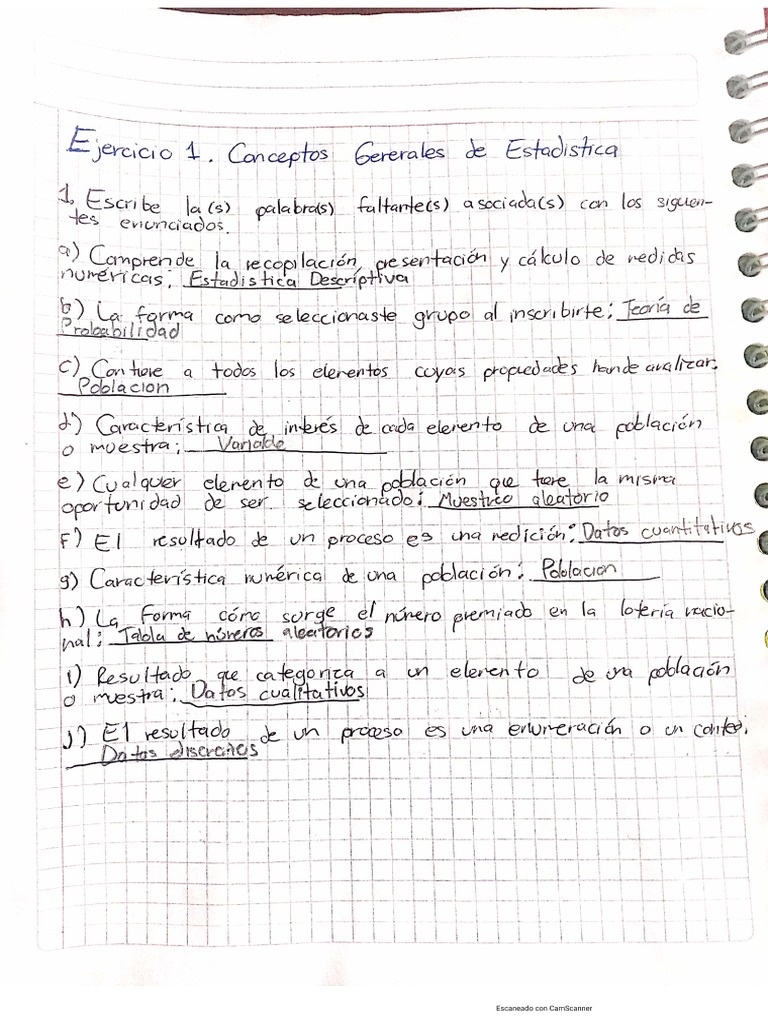 Ejercicio 1. Conceptos Generales de Estadistica
1. Escribe la(s) palabra(s) faltante(s) asociada(s) con los siguen-
tes enunciados.
a) Comprende la recopilación, presentación y cálculo de medidas
numéricas; Estadistica Descriptiva
b) La forma como seleccionaste grupo al inscribirte; Teoría de
Probabilidad
c) Contiene a todos los elementos cuyas propiedades han de analizar.
Poblacion
d) Característica de interés de cada elemento de una población
o muestra; Variable
e) Cualquer elemento de una población que tiene la misma
oportunidad de ser seleccionado: Muestreo aleatorio
f) El resultado de un proceso es una medición: Datos cuantitativos
g) Característica numérica de una población: Poblacion
h) La forma cómo surge el número premiado en la lotería nacio-
nal: Tabla de números aleatorios
i) Resultado que categoriza a un elemento de una población
o muestra; Datos cualitativos
j) El resultado de un proceso es una enumeración o un conteo:
Datos discretos
Escaneado con CamScanner